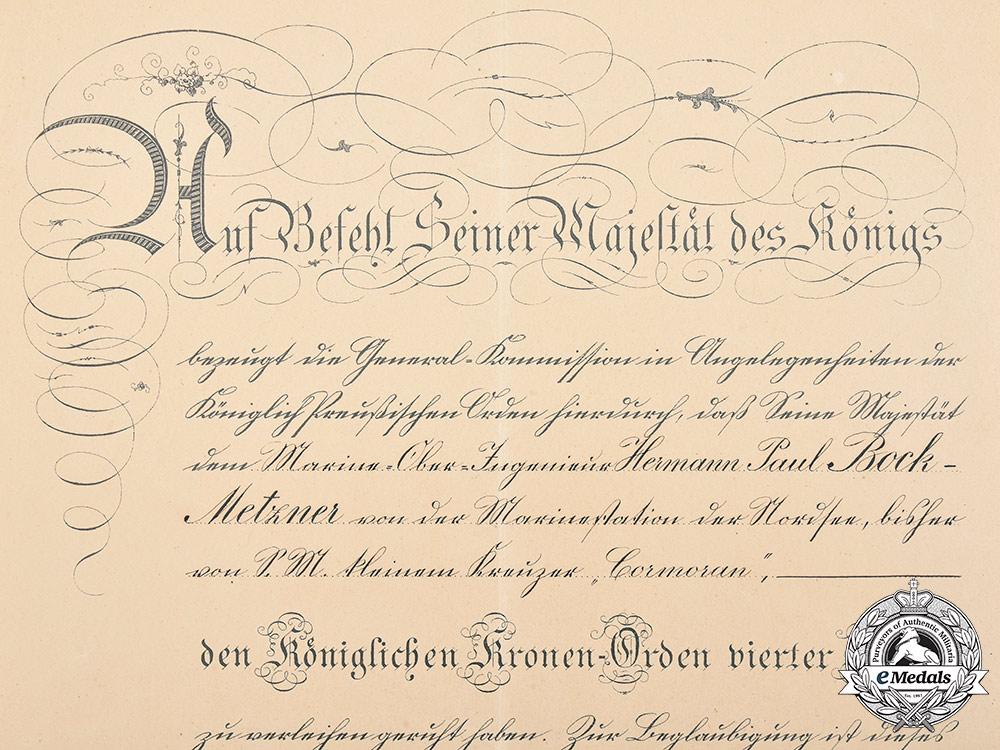 Auf Befehl Seiner Majestät des Königs
bezeugt die General-Kommission in Angelegenheiten der
Königlich Preußischen Orden hierdurch, daß Seine Majestät
dem Marine-Ober-Ingenieur Hermann Paul Bock-
Metzner von der Marinestation der Nordsee, bisher
von S.M. kleinem Kreuzer „Cormoran",
den Königlichen Kronen-Orden vierter
zu verleihen geruht haben. Zur Beglaubigung ist dieses
Purveyors of Authentic Militaria
eMedals
Est. 1967